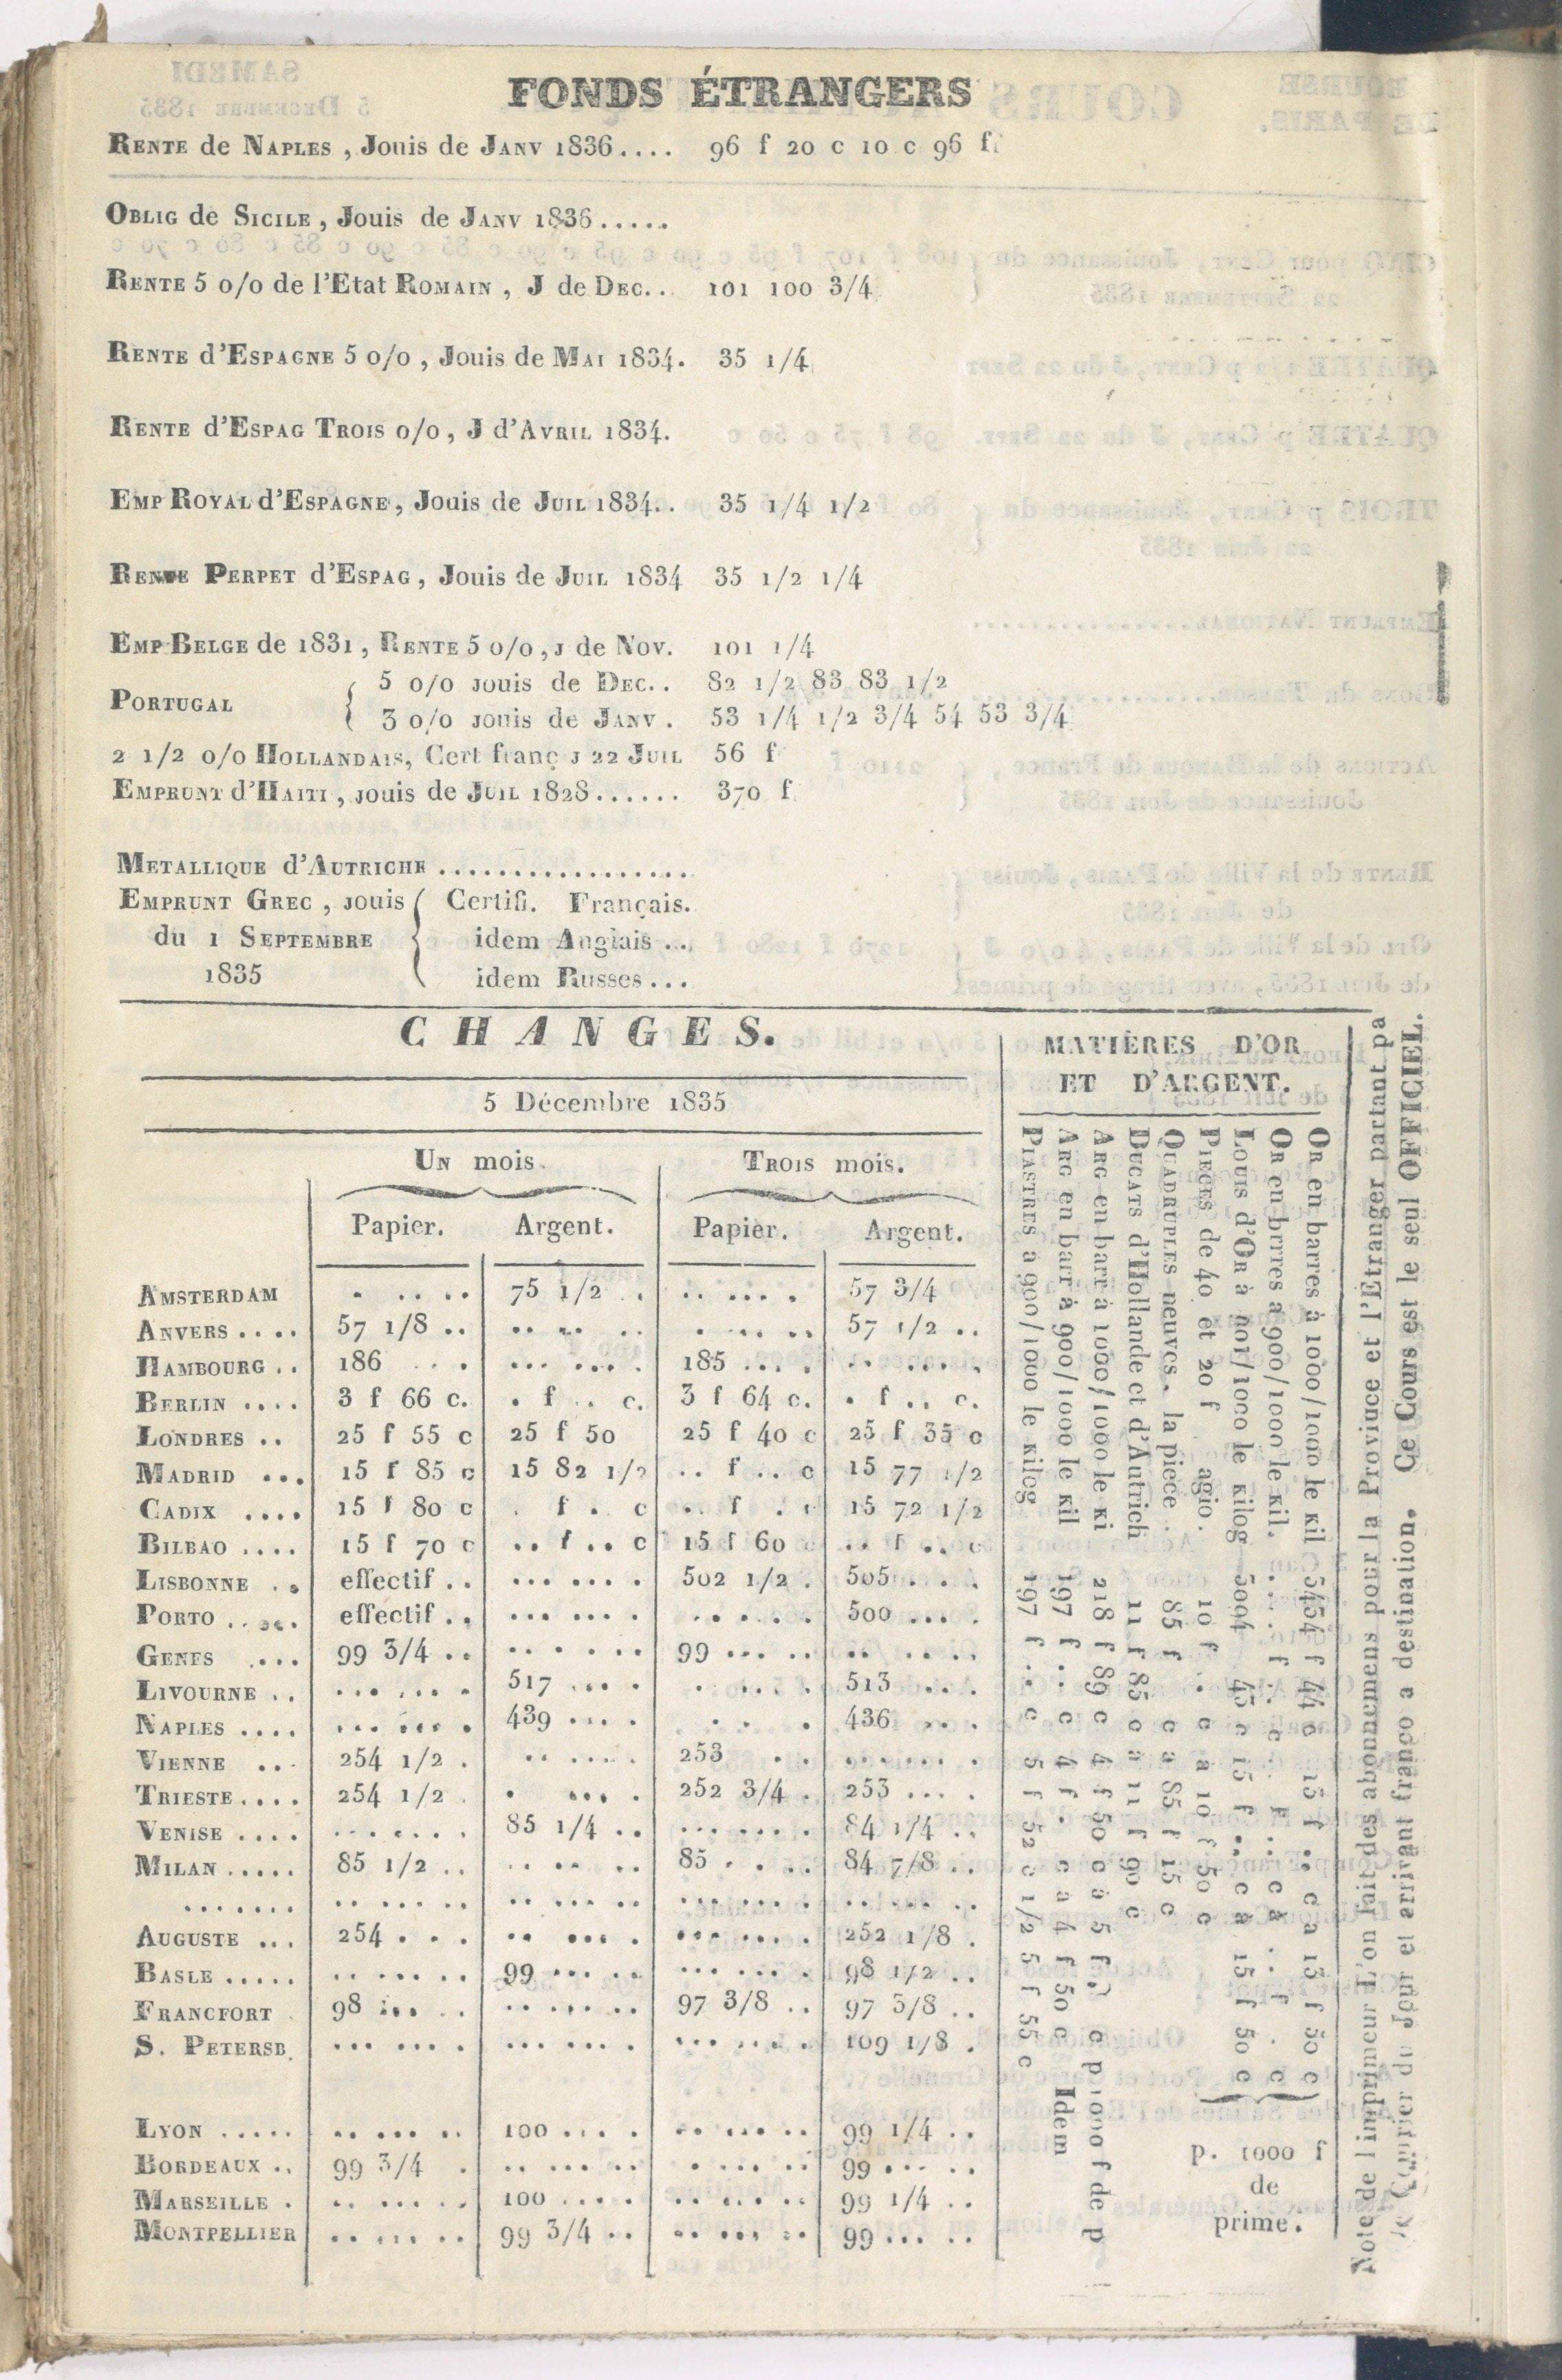 FONDS ÉTRANGERS
RENTE de NAPLES , Jouis de JANV 1836.... 96 f 20 c 10 c 96 f
OBLIG de SICILE , Jouis de JANV 1836.....
RENTE 5 o/o de l'Etat ROMAIN , J de DEC... 101 100 3/4
RENTE d'ESPAGNE 5 o/o , Jouis de MAI 1834. 35 1/4
RENTE d'ESPAG TROIS o/o , J d'AVRIL 1834.
EMP ROYAL d'ESPAGNE , Jouis de JUIL 1834.. 35 1/4 1/2
RENTE PERPET d'ESPAG , Jouis de JUIL 1834 35 1/2 1/4
EMP BELGE de 1831 , RENTE 5 o/o , J de NOV. 101 1/4
5 o/o JOUIS de DEC.. 82 1/2 83 83 1/2
PORTUGAL
3 o/o JOUIS de JANV . 53 1/4 1/2 3/4 54 53 3/4
2 1/2 o/o HOLLANDAIS, Cert franç J 22 JUIL 56 f
EMPRUNT d'HAITI , JOUIS de JUIL 1828...... 370 f
METALLIQUE d'AUTRICHE .................
EMPRUNT GREC , JOUIS Certifi. Français.
du 1 SEPTEMBRE idem Anglais ...
1835 idem Russes...
CHANGES.
5 Décembre 1835
UN mois. TROIS mois.
Papier. Argent. Papier. Argent.
AMSTERDAM 75 1/2 57 3/4
ANVERS .... 57 1/8 .. 57 1/2 ..
HAMBOURG .. 186 185
BERLIN .... 3 f 66 c. . f .. c. 3 f 64 c. . f .. c.
LONDRES .. 25 f 55 c 25 f 50 25 f 40 c 25 f 35 c
MADRID ... 15 f 85 c 15 82 1/2 .. f .. c 15 77 1/2
CADIX .... 15 f 80 c . f . c .. f . c 15 72 1/2
BILBAO .... 15 f 70 c .. f .. c 15 f 60 c .. f .. c
LISBONNE .. effectif .. 502 1/2 . 505
PORTO ..... effectif .. 500
GENES .... 99 3/4 .. 99
LIVOURNE .. 517 513
NAPLES .... 439 436
VIENNE ... 254 1/2 . 253
TRIESTE.... 254 1/2 . 252 3/4 . 253
VENISE .... 85 1/4 .. 84 1/4 ..
MILAN ..... 85 1/2 .. 85 84 7/8 ..
.......
AUGUSTE ... 254 252 1/8 .
BASLE ..... 99 98 1/2 ..
FRANCFORT . 98 97 3/8 .. 97 3/8 ..
S. PETERSB. 109 1/8 .
LYON ..... 100 99 1/4 ..
BORDEAUX .. 99 3/4 . 99
MARSEILLE . 100 99 1/4 ..
MONTPELLIER 99 3/4 .. 99
MATIÈRES D'OR
ET D'ARGENT.
OR en barres à 1000/1000 le KIL 3434 f 44 c 15 f .. c a 15 f 50 c
OR en brres à 900/1000 le KIL. .... f .. c . f .. c à .. f . c
LOUIS d'OR à 901/1000 le KILOG 3094 43 c 15 f .. c à 15 f 50 c
PIECES de 40 et 20 f agio . 10 f . c à 10 f 50 c
QUADRUPLES neuves , la piece . 85 f c a 85 f 15 c
DUCATS d'Hollande et d'Autrich 11 f 85 c a 11 f 90 c
ARG en barr à 1000/1000 le KI 218 f 89 c 4 f 50 c à 5 f c p 1000 f de p
ARG en barr à 900/1000 le KIL 197 f .. c 4 f . c a 4 f 50 c Idem
PIASTRES a 900/1000 le KILOG 197 f .. c 5 f 52 c 1/2 5 f 55 c
p. 1000 f
de
prime.
Note de l'imprimeur L'on fait des abonnemens pour la Province et l'Etranger partant pa
le Courrier du Jour et arrivant franco a destination. Ce Cours est le seul OFFICIEL.